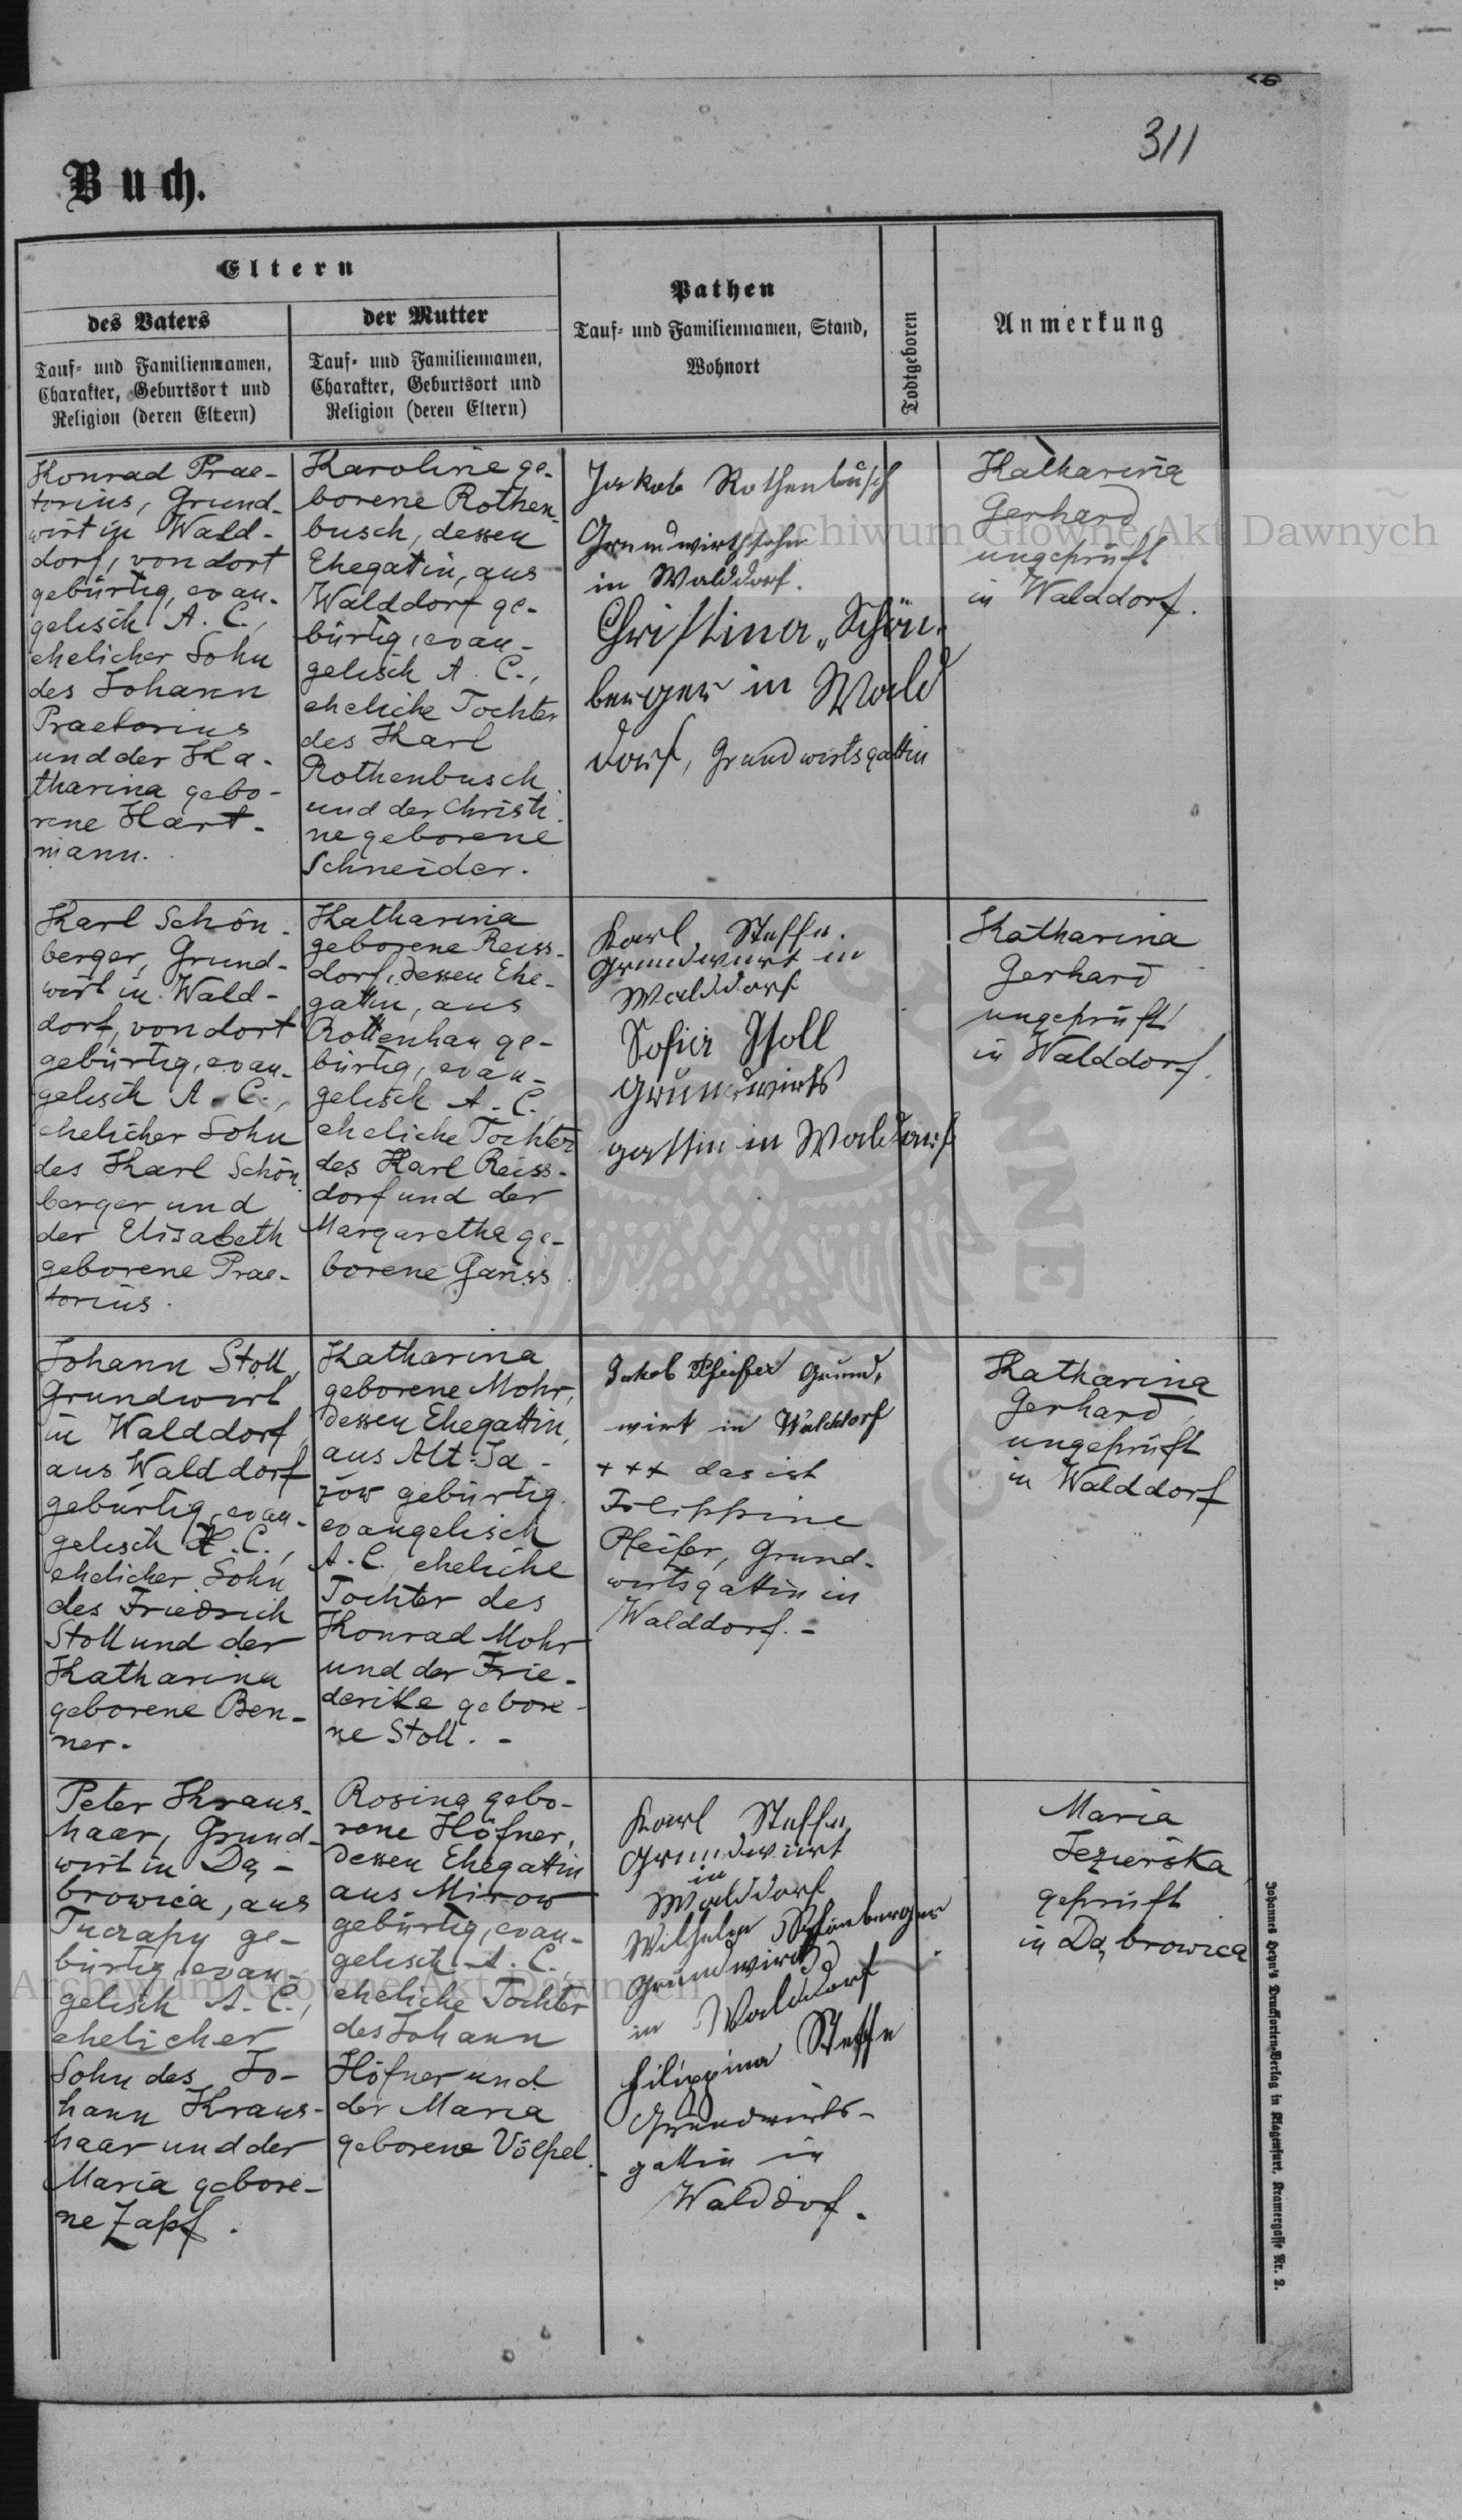 311
Buch.
Eltern
des Vaters
Tauf- und Familiennamen,
Charakter, Geburtsort und
Religion (deren Eltern)
der Mutter
Tauf- und Familiennamen,
Charakter, Geburtsort und
Religion (deren Eltern)
Pathen
Tauf- und Familiennamen, Stand,
Wohnort
Todtgeboren
Anmerkung
Konrad Prae-
torius, Grund-
wirt in Wald-
dorf, von dort
gebürtig, evan-
gelisch A. C.,
ehelicher Sohn
des Johann
Praetorius
und der Ka-
tharina gebo-
rene Hart-
mann.
Karoline ge-
borene Rothen-
busch, dessen
Ehegatin, aus
Walddorf ge-
bürtig, evan-
gelisch A. C.,
eheliche Tochter
des Karl
Rothenbusch
und der Christi-
ne geborene
Schneider.
Jakob Rothenbusch
Grundwirthsohn
in Walddorf.
Christina Schön-
berger in Wald
dorf, Grundwirtsgattin
Katharina
Gerhard
ungeprüft
in Walddorf.
Karl Schön-
berger, Grund-
wirt in Wald-
dorf, von dort
gebürtig, evan-
gelisch A. C.,
ehelicher Sohn
des Karl Schön-
berger und
der Elisabeth
geborene Prae-
torius.
Katharina
geborene Reiss-
dorf, dessen Ehe-
gattin, aus
Rottenhan ge-
bürtig, evan-
gelisch A. C.
eheliche Tochter
des Karl Reiss-
dorf und der
Margaretha ge-
borene Ganss
Karl Steffn.
Grundwirt in
Walddorf
Sofia Stoll
Grundwirts
gattin in Walddorf
Katharina
Gerhard
ungeprüft
in Walddorf.
Johann Stoll,
Grundwirt
in Walddorf,
aus Walddorf
gebürtig, evan-
gelisch H. C.,
ehelicher Sohn
des Friedrich
Stoll und der
Katharina
geborene Ben-
ner.
Katharina
geborene Mohr,
dessen Ehegattin,
aus Alt-Ja-
zow gebürtig,
evangelisch
A. C. eheliche
Tochter des
Konrad Mohr
und der Frie-
derike gebore-
ne Stoll. -
Jakob Pfeifer Grund,
wirt in Walddorf
+++ das ist
Filippine
Pfeifer, Grund-
wirtsgattin in
Walddorf. -
Katharina
Gerhard,
ungeprüft
in Walddorf
Peter Kraus-
haar, Grund-
wirt in Dą-
browica, aus
Tucrapy ge-
bürtig, evan-
gelisch A. C.,
ehelicher
Sohn des Jo-
hann Kraus-
haar und der
Maria gebore-
ne Zapf.
Rosina gebo-
rene Höfner,
dessen Ehegattin
aus Mirow
gebürtig, evan-
gelisch A. C.
eheliche Tochter
des Johann
Höfner und
der Maria
geborene Völpel.
Karl Steffn
Grundwirt
in
Walddorf
Wilhelm Schönberger
Grundwirt
in Walddorf
Filippina Steffn
Grundwirts-
gattin in
Walddorf.
Maria
Jezierska
geprüft
in Dąbrowica
Johannes Heyn's Drucksorten-Verlag in Klagenfurt, Kramergasse Nr. 2.
Archiwum Główne Akt Dawnych
Archiwum Główne Akt Dawnych